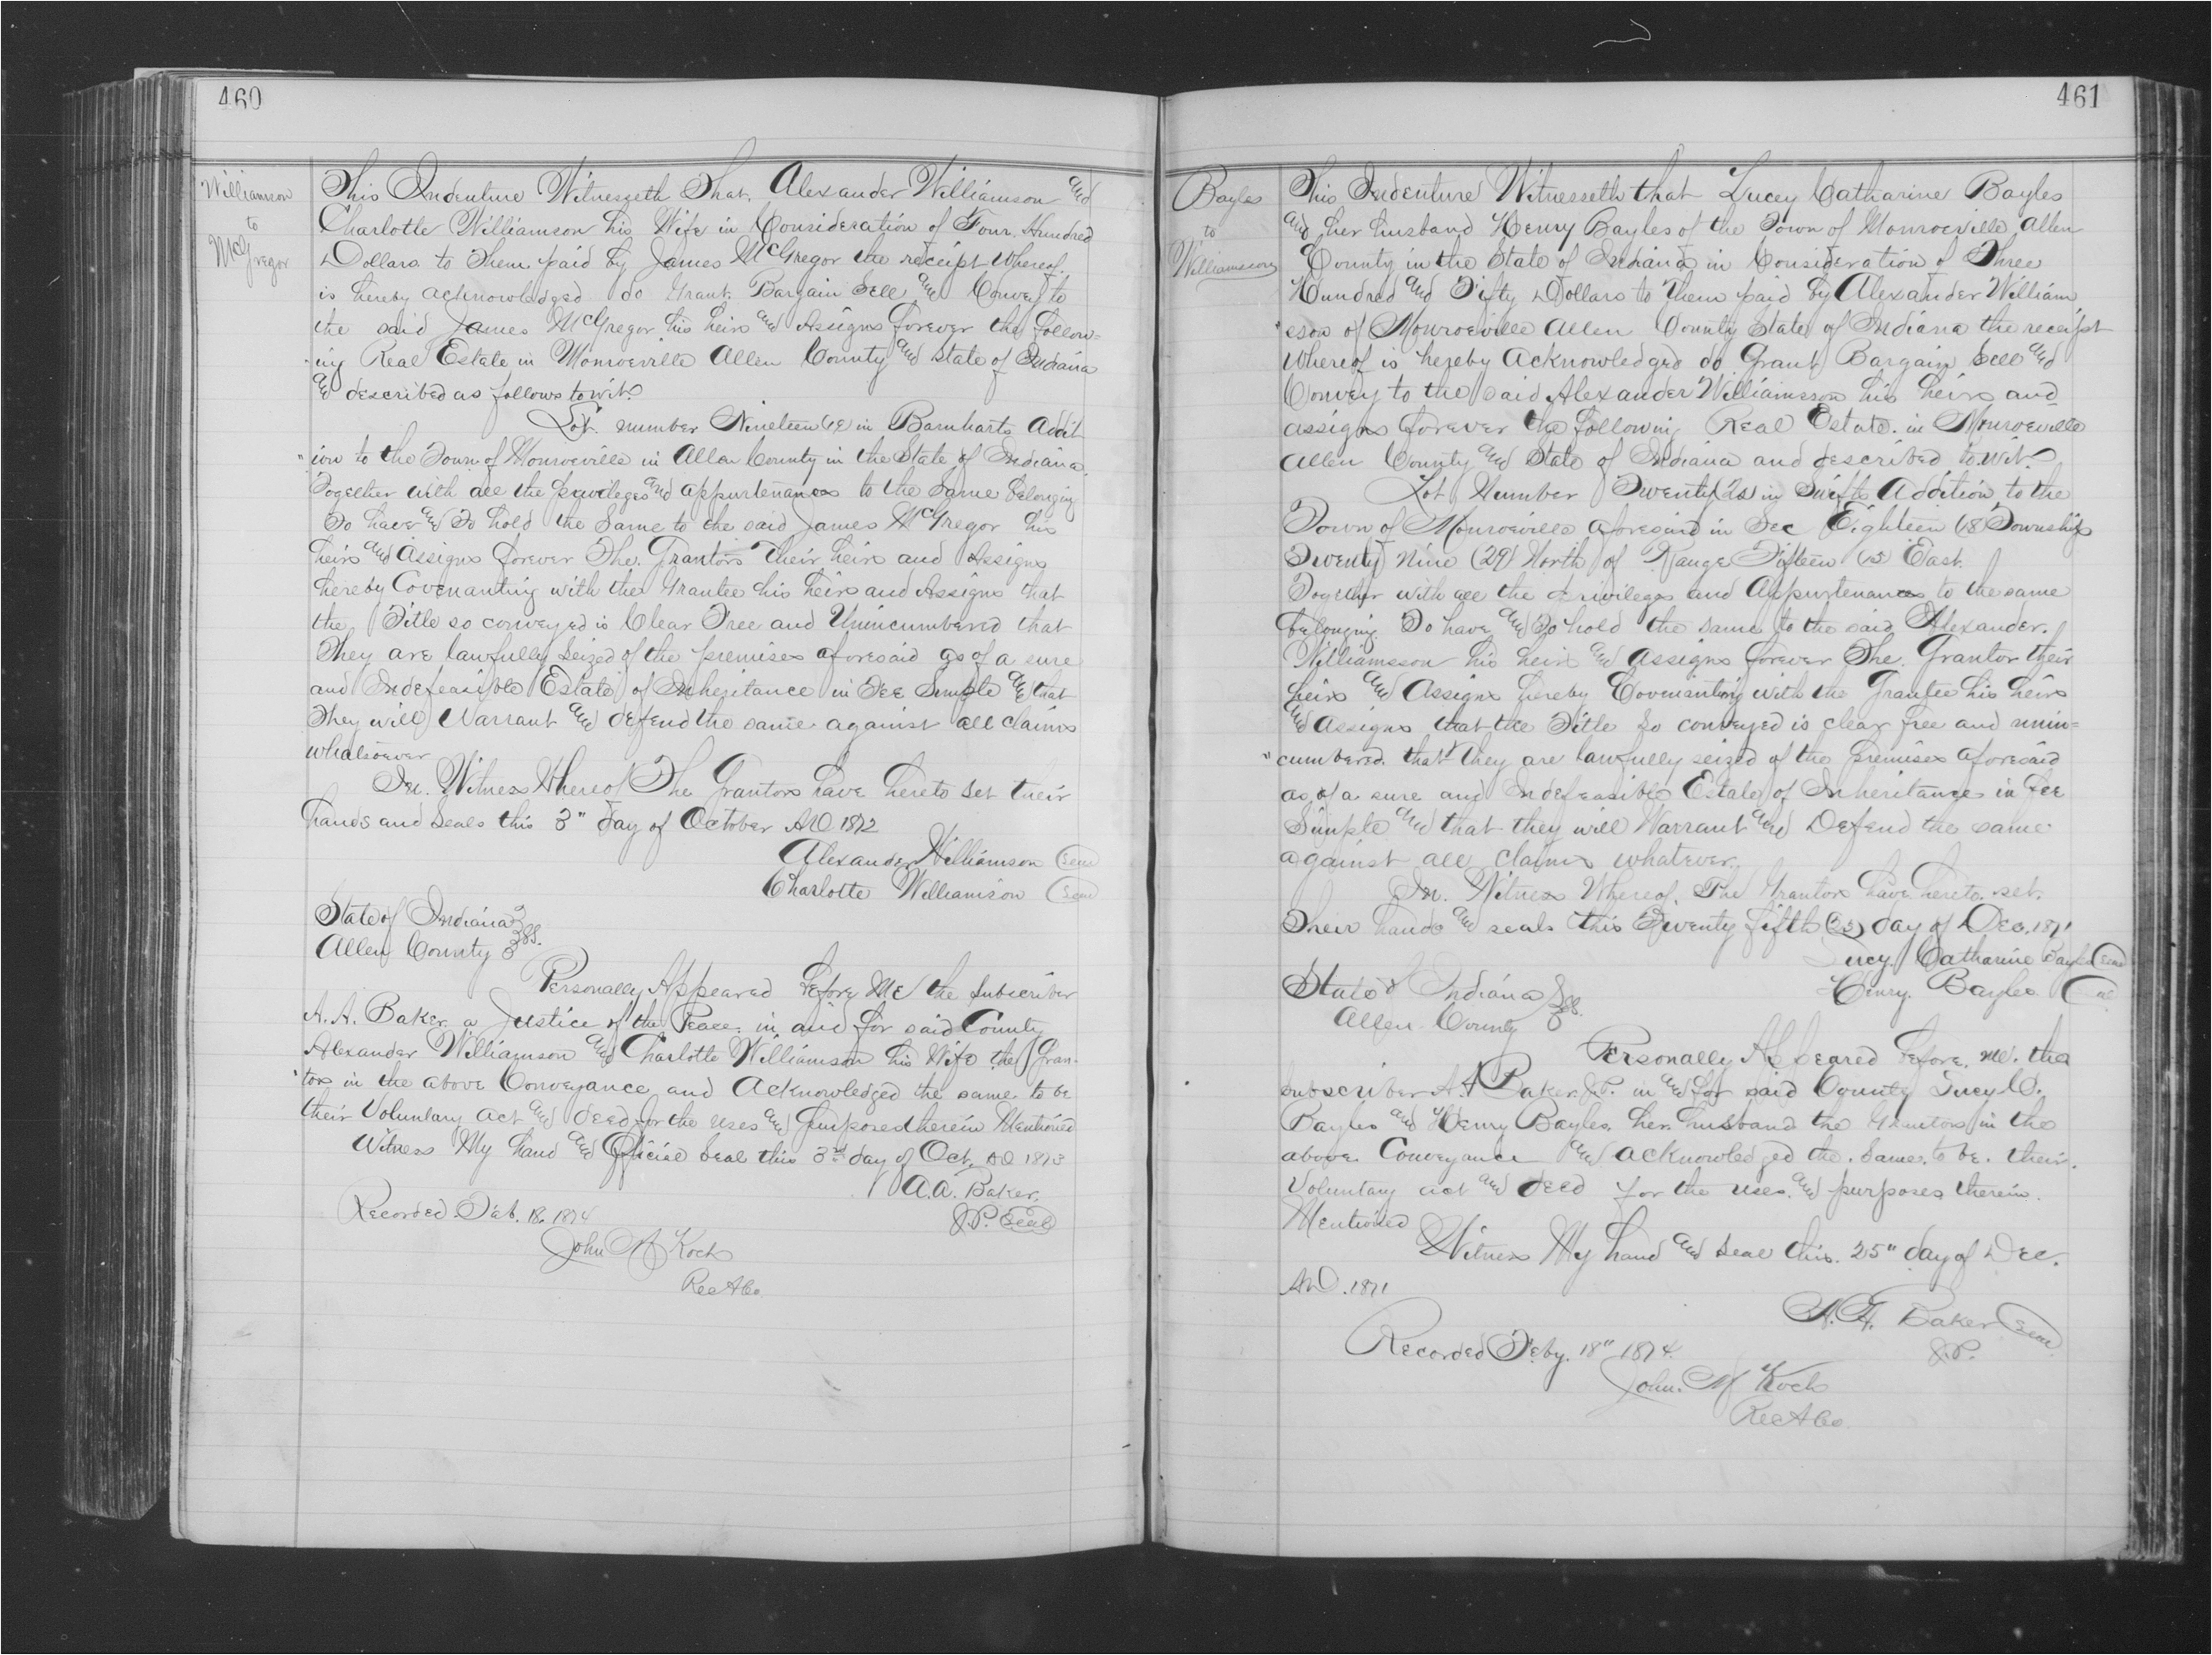 460
Williamson
to
McGregor
This Indenture Witnesseth That, Alexander Williamson and
Charlotte Williamson his Wife in Consideration of Four Hundred
Dollars to Them paid by James McGregor the receipt Whereof
is hereby acknowledged do Grant Bargain Sell and Convey to
the said James McGregor his heirs and Assigns forever the follow=
ing Real Estate in Monroeville Allen County and State of Indiana
and described as follows to wit.
Lot number Nineteen (19) in Barnharts Addit
"ion to the Town of Monroeville in Allen County in the State of Indiana.
Together with all the privileges and appurtenances to the Same belonging
To have and To hold the Same to the said James McGregor his
heirs and Assigns forever The Grantors Their heirs and Assigns
hereby Covenanting with the Grantee his heirs and Assigns that
the Title so conveyed is Clear Free and Unincumbered that
They are lawfully Seized of the premises aforesaid as of a sure
and Indefeasible Estate of Inheritance in Fee Simple and that
They will Warrant and defend the same against all claims
whatsoever
In Witness Whereof The Grantors have hereto Set their
hands and Seals this 3" day of October AD 1872
Alexander Williamson (Seal)
Charlotte Williamson (Seal)
State of Indiana
Allen County SS.
Personally Appeared before Me the Subscriber
A. A. Baker a Justice of the Peace in and for said County
Alexander Williamson and Charlotte Williamson his Wife the Gran-
"tors in the above Conveyance and Acknowledged the same to be
their Voluntary act and deed for the uses and purposes therein Mentioned
Witness My hand and Official Seal this 3rd day of Oct. AD 1873
A.A. Baker.
J.P. (Seal)
Recorded Feb. 18. 1874
John M Koch
Rec A Co.
461
Bayles
to
Williamson
This Indenture Witnesseth that Lucey Catharine Bayles
and her husband Henry Bayles of the Town of Monroeville Allen
County in the State of Indiana in Consideration of Three
Hundred and Fifty Dollars to Them paid by Alexander William
"sson of Monroeville Allen County State of Indiana the receipt
Whereof is hereby Acknowledged do Grant Bargain Sell and
Convey to the said Alexander Williamsson his heirs and
assigns forever the following Real Estate in Monroeville
Allen County and State of Indiana and described to wit.
Lot Number Twenty (20) in Swifts Addition to the
Town of Monroeville aforesaid in Sec Eighteen (18) Township
Twenty Nine (29) North of Range Fifteen (15) East.
Together with all the Privileges and Appurtenances to the same
belonging To have and To hold the same to the said Alexander.
Williamsson his heirs and Assigns forever The Grantor their
heirs and Assigns hereby Covenanting with the Grantee his heirs
and Assigns that the Title So conveyed is clear free and unin=
"cumbered. that They are lawfully seized of the premises aforesaid
as of a sure and Indefeasible Estate of Inheritance in Fee
Simple and that they will Warrant and Defend the same
against all claims whatever.
In Witness Whereof. The Grantors have hereto set.
Their hands and seals this Twenty fifth (25) day of Dec. 1871
Lucy. Catharine Bayles (Seal)
Henry. Bayles (Seal)
State of Indiana
Allen County SS.
Personally Appeared before. me. the
subscriber A. A. Baker J.P. in and for said County Lucy C.
Bayles and Henry Bayles. her husband the Grantors in the
above Conveyance and acknowledged the. Same. to be. their.
Voluntary act and deed for the uses. and purposes therein.
Mentioned
Witness My hand and Seal this. 25" day of Dec.
A.D. 1871
A. A. Baker (Seal)
J.P.
Recorded Feby. 18" 1874
John. M Koch
Rec A Co.